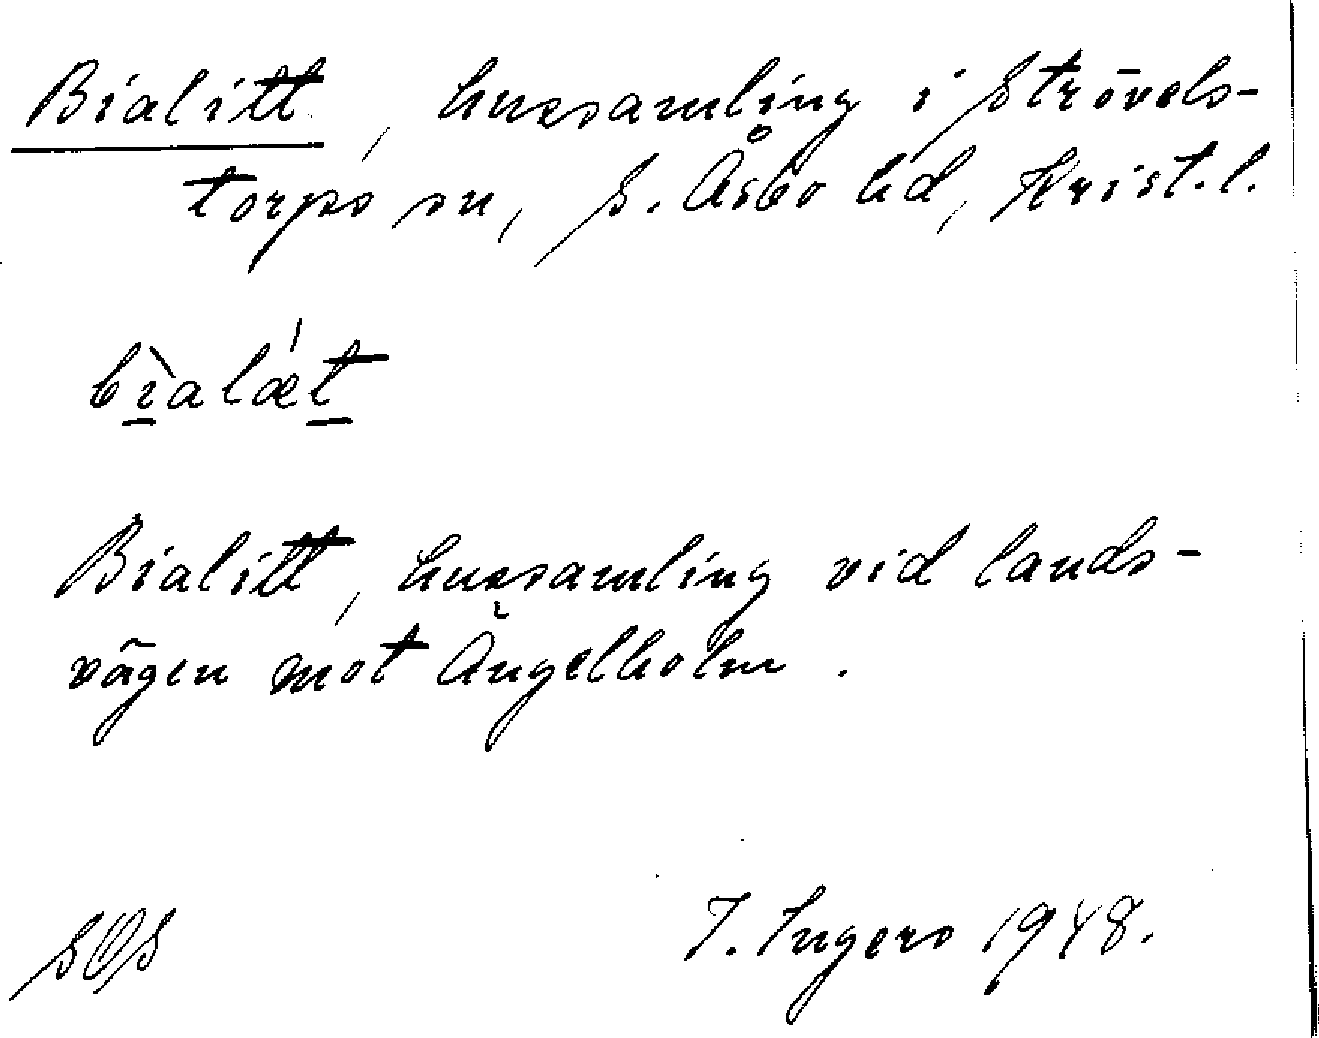 Bialitt, hussamling i Strövels-
torps sn, S. Åsbo hd, Krist. l.
bìalǽt
Bialitt, hussamling vid lands-
vägen mot Ängelholm.
SOS
I. Ingers 1948.